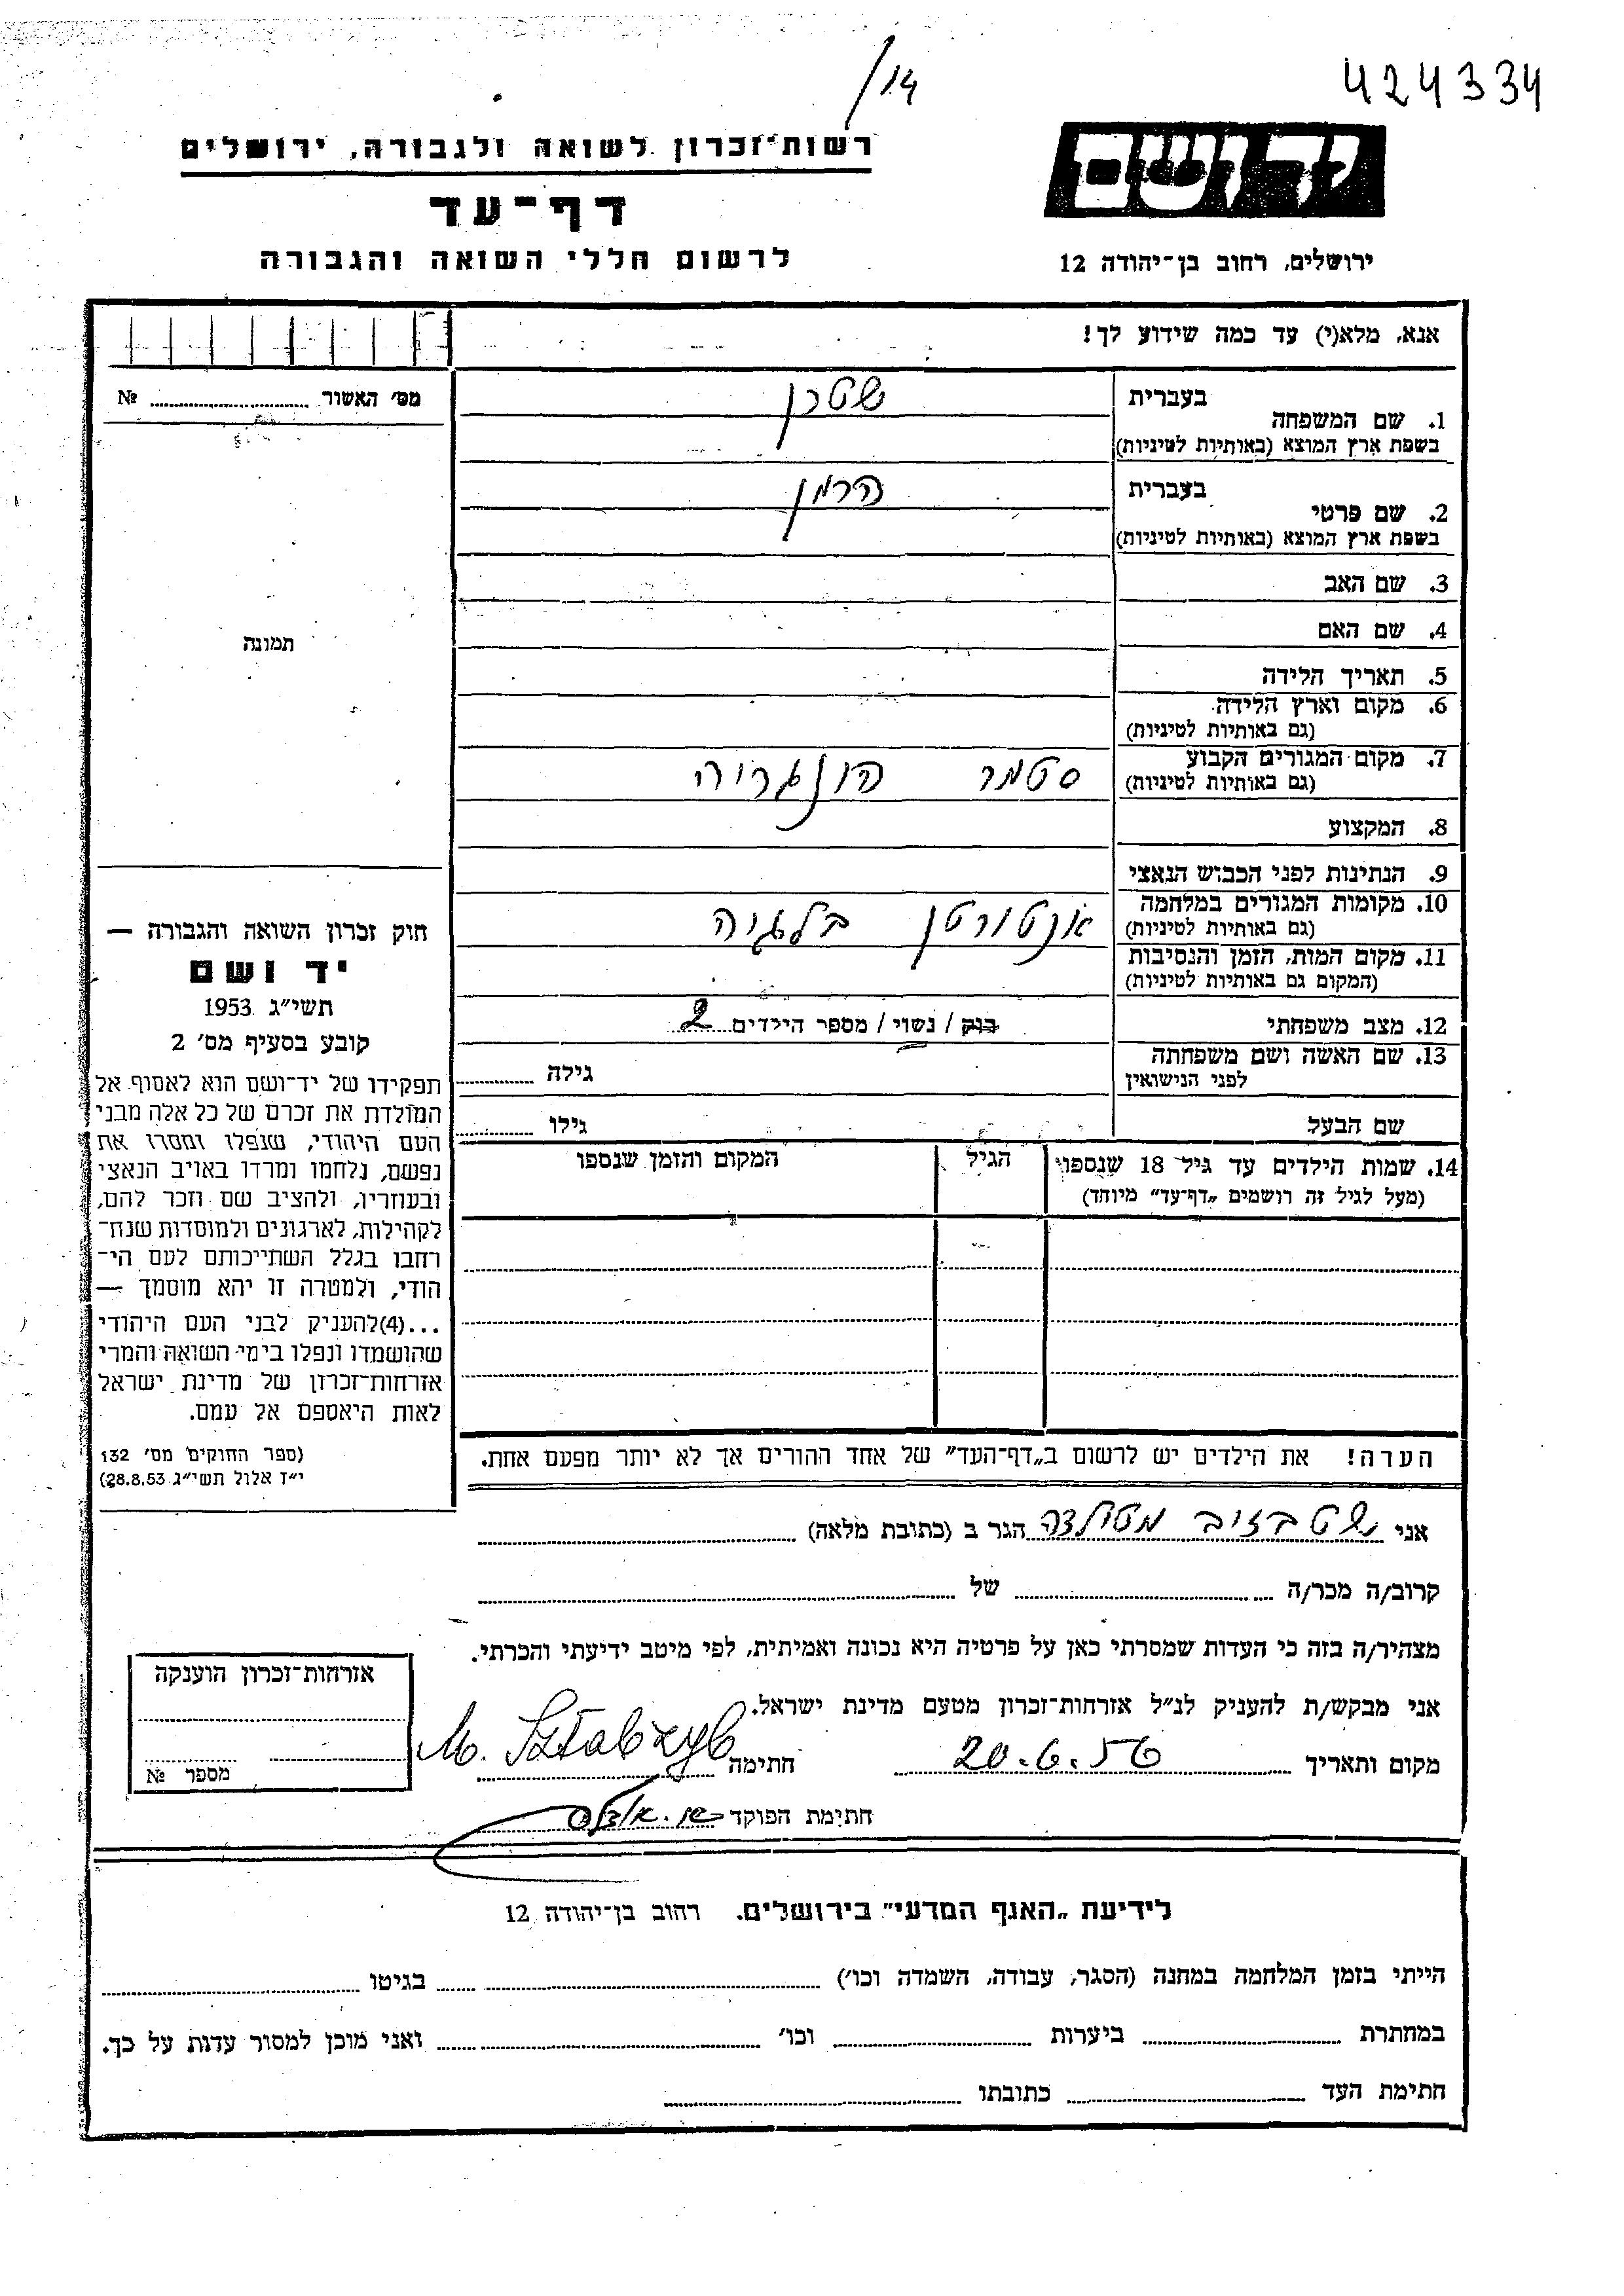 424334
/14
יד ושם
רשות־זכרון לשואה ולגבורה, ירושלים
דף־עד
לרשום חללי השואה והגבורה
ירושלים, רחוב בן־יהודה 12
אנא, מלא(י) עד כמה שידוע לך!
מס׳ האשור № 
בעברית שטרן
1. שם המשפחה
בשפת ארץ המוצא (באותיות לטיניות)
בעברית הרמן
2. שם פרטי
בשפת ארץ המוצא (באותיות לטיניות)
3. שם האב
4. שם האם
תמונה
5. תאריך הלידה
6. מקום וארץ הלידה
(גם באותיות לטיניות)
7. מקום המגורים הקבוע סטמר הונגריה
(גם באותיות לטיניות)
8. המקצוע
9. הנתינות לפני הכבוש הנאצי
10. מקומות המגורים במלחמה אנטורטן בלגיה
(גם באותיות לטיניות)
11. מקום המות, הזמן והנסיבות
(המקום גם באותיות לטיניות)
12. מצב משפחתי רוק / נשוי / מספר הילדים 2
13. שם האשה ושם משפחתה גילה
לפני הנישואין
שם הבעל גילו
14. שמות הילדים עד גיל 18 שנספו הגיל המקום והזמן שנספו
(מעל לגיל זה רושמים „דף־עד" מיוחד)
חוק זכרון השואה והגבורה —
יד ושם
תשי״ג 1953
קובע בסעיף מס׳ 2
תפקידו של יד־ושם הוא לאסוף אל
המולדת את זכרם של כל אלה מבני
העם היהודי, שנפלו ומסרו את
נפשם, נלחמו ומרדו באויב הנאצי
ובעוזריו, ולהציב שם וזכר להם,
לקהילות, לארגונים ולמוסדות שנח־
רחבו בגלל השתייכותם לעם הי־
הודי, ולמטרה זו יהא מוסמך —
...(4)להעניק לבני העם היהודי
שהושמדו ונפלו בימי השואה והמרי
אזרחות־זכרון של מדינת ישראל
לאות היאספם אל עמם.
(ספר החוקים מס׳ 132
י״ז אלול תשי״ג 28.8.53)
הערה! את הילדים יש לרשום ב„דף־העד" של אחד ההורים אך לא יותר מפעם אחת.
אני שטבזיב מטילדה הגר ב (כתובת מלאה)
קרוב/ה מכר/ה של
מצהיר/ה בזה כי העדות שמסרתי כאן על פרטיה היא נכונה ואמיתית, לפי מיטב ידיעתי והכרתי.
אני מבקש/ת להעניק לנ״ל אזרחות־זכרון מטעם מדינת ישראל.
מקום ותאריך 20.6.56 חתימה M. Sztabzyb
חתימת הפוקד
אזרחות־זכרון הוענקה
מספר №
לידיעת „האגף המדעי" בירושלים. רחוב בן־יהודה 12
הייתי בזמן המלחמה במחנה (הסגר, עבודה, השמדה וכו׳) בגיטו
במחתרת ביערות וכו׳ ואני מוכן למסור עדות על כך.
חתימת העד כתובתו